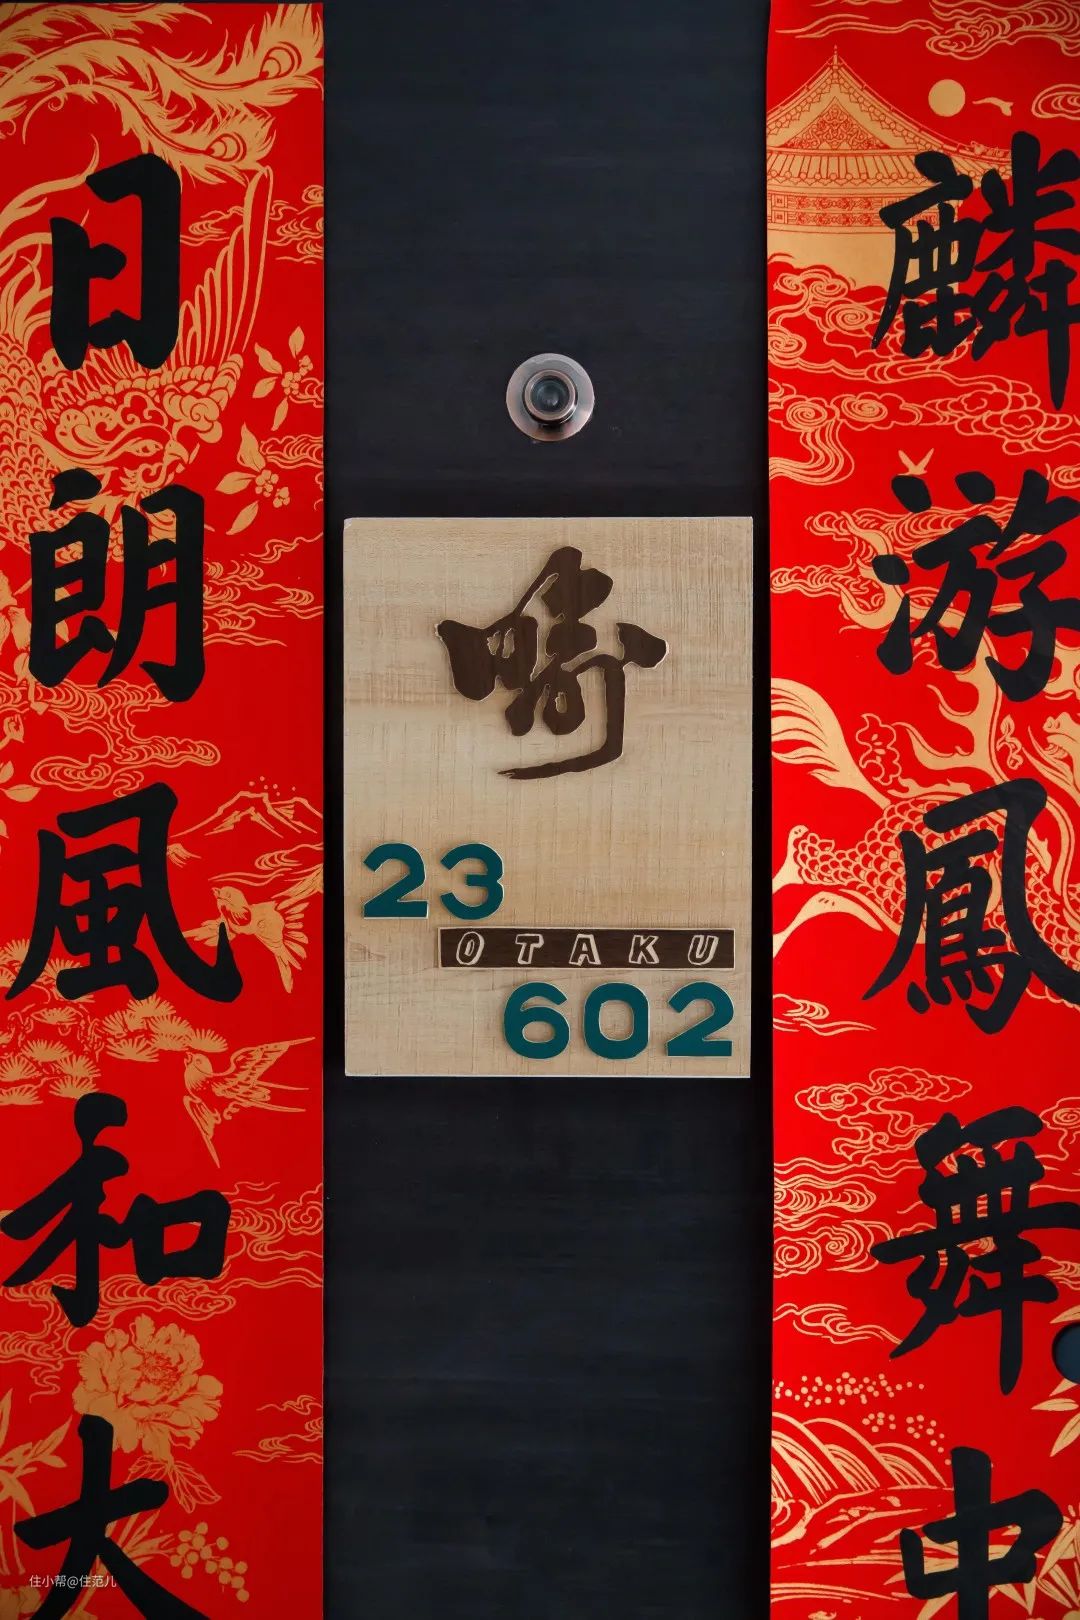 麟游鳳舞中
日朗風和大
23
OTAKU
602
住小帮@住范儿